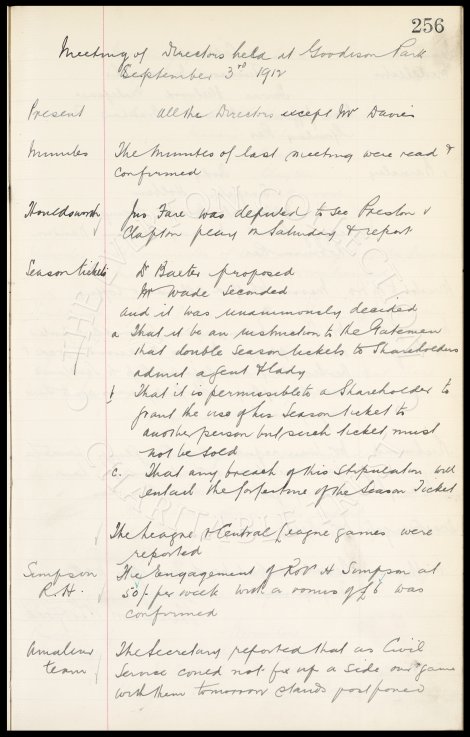 256
Meeting of Directors held at Goodison Park
September 3rd 1912
Present All the Directors except Mr Davies
Minutes The Minutes of last meeting were read &
confirmed
Houldsworth Jas Fare was deputed to see Preston v
Clapton play on Saturday & report
Season tickets Dr Baxter proposed
Mr Wade seconded
and it was unanimously decided
a That it be an instruction to the Gatemen
that double Season tickets to Shareholders
admit a gent & lady
b That it is permissible to a Shareholder to
grant the use of his Season ticket to
another person but such ticket must
not be sold
c. That any breach of this Stipulation will
entail the forfeiture of the Season Ticket
The League & Central League games were
reported
Simpson The engagement of Robt H Simpson at
R.H. 50/- per week with a bonus of £6 was
confirmed
Amateur The Secretary reported that as Civil
team Service could not fix up a side our game
with them tomorrow stands postponed